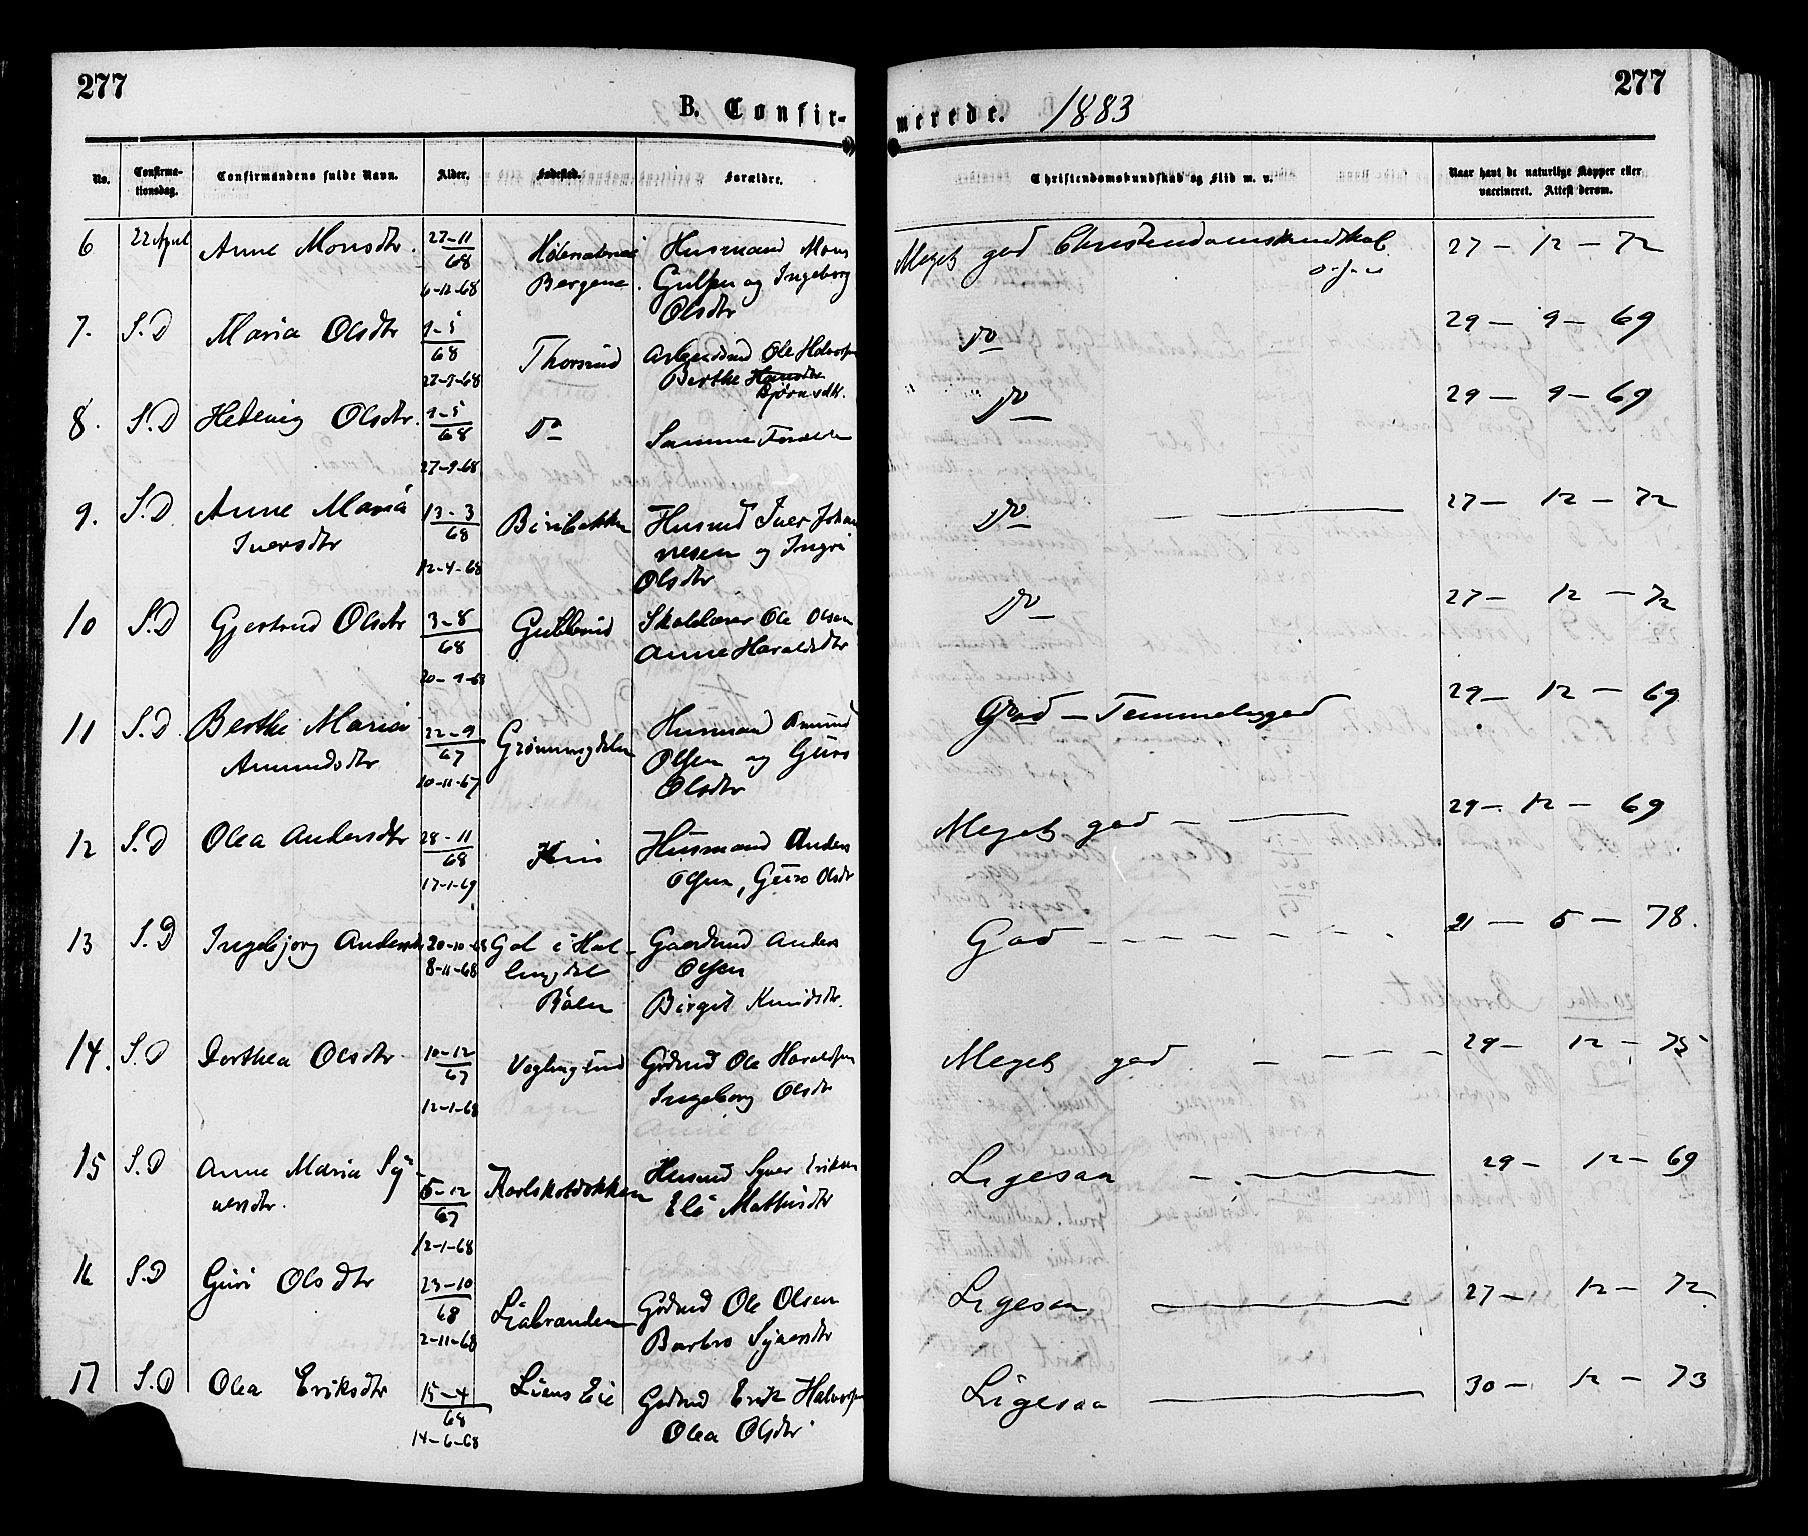 277
B. Confir-
merede. 1883
277
No.
Confirma-
tionsdag.
Confirmandens fulde Navn.
Alder.
Fødested.
Forældre.
Christendomskundskab og Flid m. v.
Naar havt de naturlige Kopper eller
vaccineret. Attest derom.
6 22 April Anne Monsdtr. 27-11 Husmand Mons Meget god Christendomskundskab 27 - 12 - 72
68
6-12-68 Bergene. og Ingeborg
Olsdtr
7. S.D Maria Olsdtr 9-5 Thorsrud Ole Halvorsen Do 29 - 9 - 69
68
27-9-68 Berthe Hansdtr
Bjørnsdtr.
8. S.D Hedevig Olsdtr. 9-5 Do Samme Forældre Do 29 - 9 - 69
68
27-9-68
9. S.D. Anne Maria 13-3 Biribakken Husmd Iver Johan Do 27 - 12 - 72
Iversdtr 68 nesen og Ingri
12-4-68 Olsdtr
10 S.D Gjertrud Olsdtr 3-8 Gulbrud Skolelærer Ole Olsen Do 27 - 12 - 72
68 Anne Haraldsdtr
20-9-68
11 S.D. Berthe Maria 22-9 Husmand Amund God - Temmelig god 29 - 12 - 69
Amundsdtr 67 Olsen og Guro
10-11-67 Olsdtr
12 S.D Olea Andersdtr 28-11 Husmand Anders Meget god - 29 - 12 - 69
68 Olsen, Guro Olsdtr
17-1-69
13 S.D Ingebjorg Andersdtr 20-10-68 Gol i Hal- Gaardmd Anders God 21 - 5 - 78.
8-11-68 lingdal Olsen
Birgit Knudsdtr.
14. S.D Dorthea Olsdtr 10-12 Gdmd Ole Haraldsen Meget god 29 - 12 - 75
67
12-1-68 Ingeborg Olsdtr
15 S.D Anne Maria Sy- 5-12 Husmd Syver Eriksen Ligesaa 29 - 12 - 69
versdtr. 67 Eli Mathisdtr
12-1-68
16 S.D Guri Olsdtr 23-10 Liabraaden Gdmd Ole Olsen Ligesaa 27 - 12 - 72
68
2-11-68 Barbro Syversdtr
17 S.D Olea Eriksdtr 15-4 Liens Eie Gdmd Erik Halvorsen Ligesaa 30 - 12 - 73
68
14-6-68 Olea Olsdtr